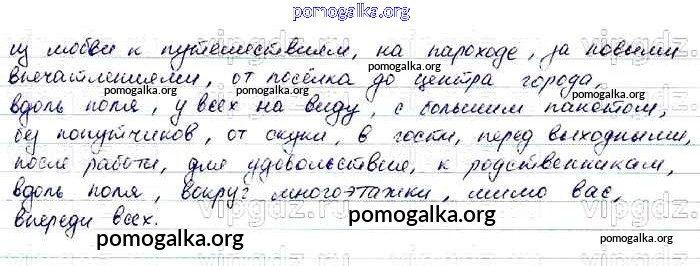 pomogalka.org
из любви к путешествиям, на пароходе, за новыми
впечатлениями, от посёлка до центра города,
вдоль поля, у всех на виду, с большим пакетом,
без попутчиков, от скуки, в гости, перед выходными,
после работы, для удовольствия, к родственникам,
вдоль поля, вокруг многоэтажки, мимо вас,
впереди всех.
pomogalka.org
pomogalka.org
pomogalka.org
pomogalka.org
vipgdz.ru